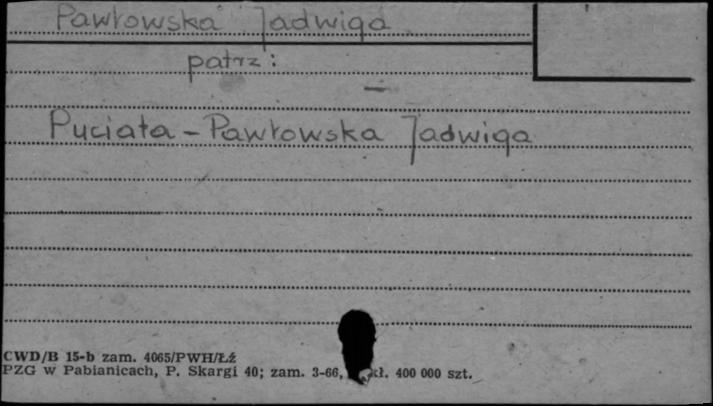 Pawłowska Jadwiga
patrz:
—
Puciata-Pawłowska Jadwiga
CWD/B 15-b zam. 4065/PWH/Łź
PZG w Pabianicach, P. Skargi 40; zam. 3-66, kł. 400 000 szt.